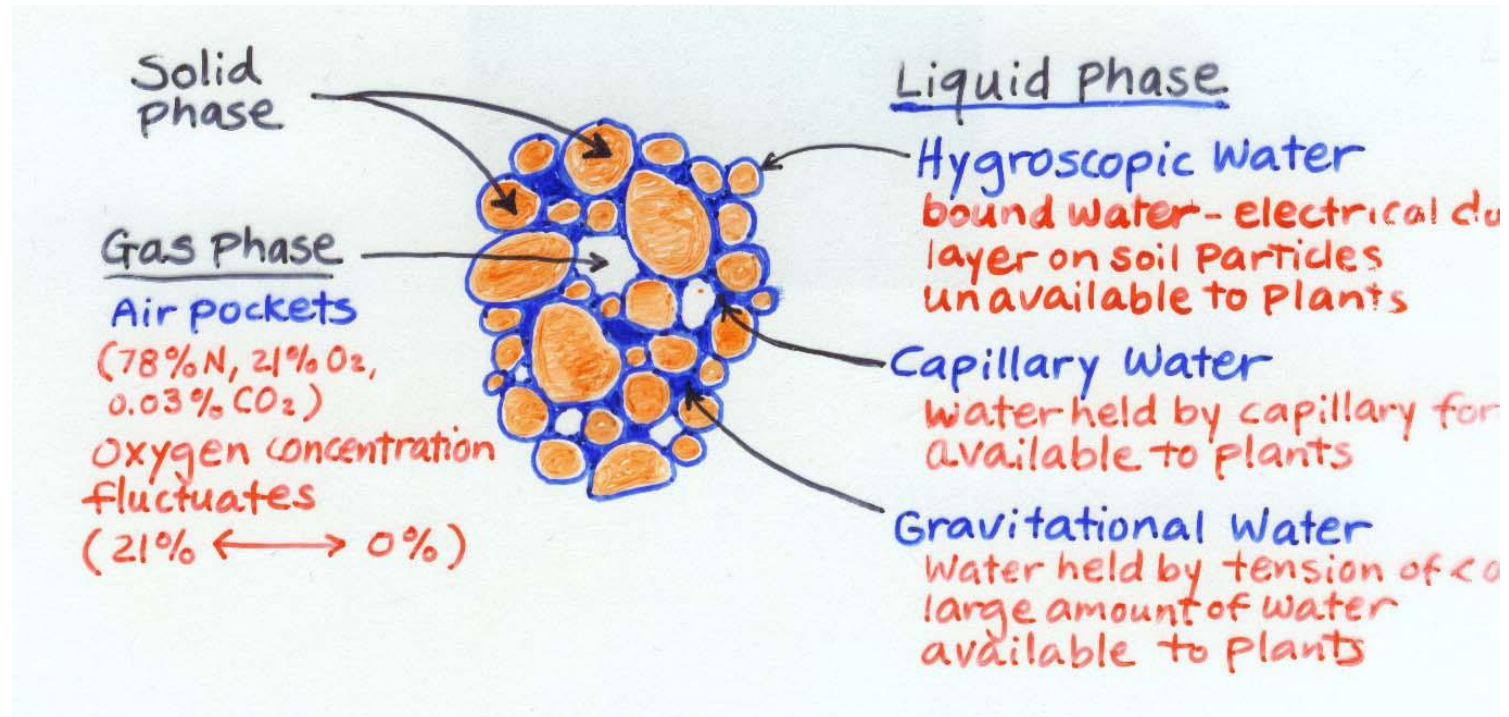 Solid
phase
Gas Phase
Air pockets
(78% N, 21% O₂,
0.03% CO₂)
Oxygen concentration
fluctuates
(21% ⟷ 0%)
Liquid Phase
Hygroscopic Water
bound water - electrical
layer on soil particles
unavailable to Plants
Capillary Water
water held by capillary
available to plants
Gravitational Water
Water held by tension of
large amount of water
available to plants